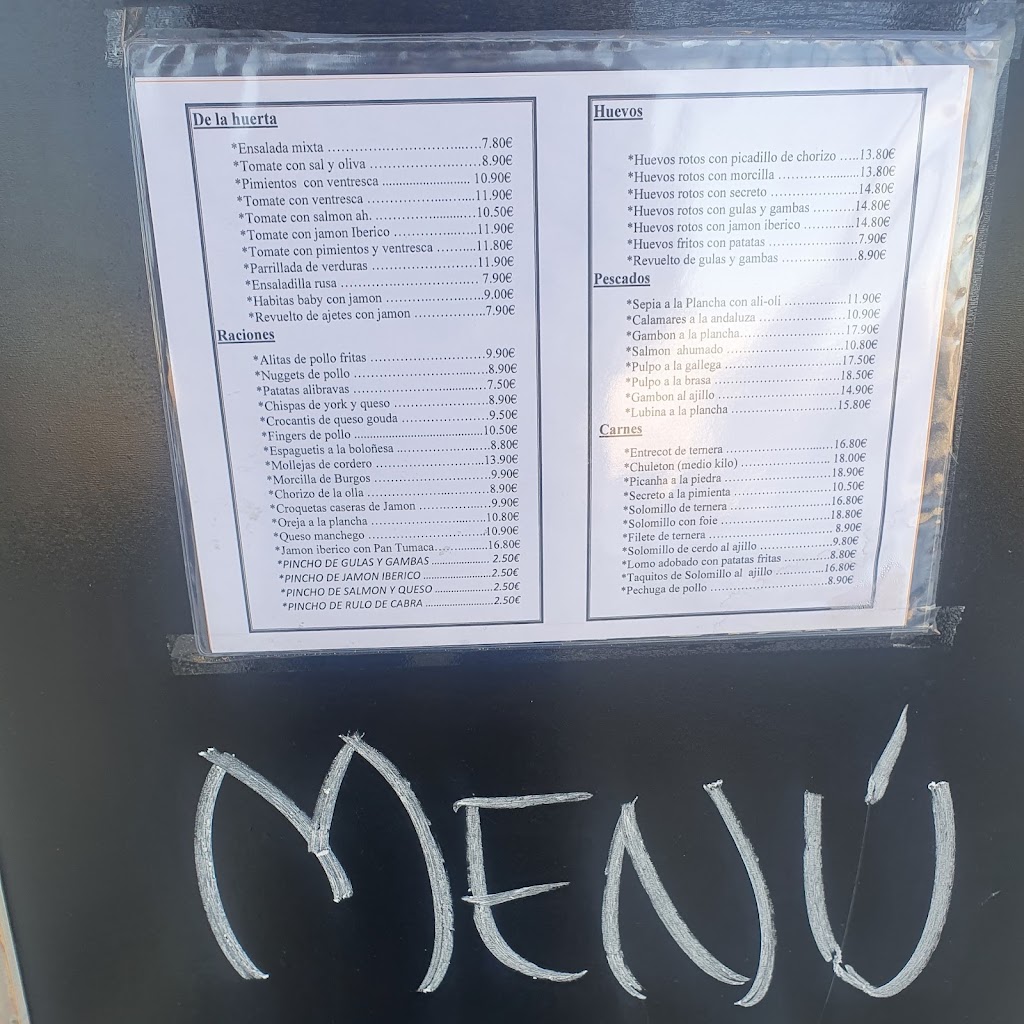 De la huerta
*Ensalada mixta ........................7.80€
*Tomate con sal y oliva ........................8.90€
*Pimientos con ventresca ........................ 10.90€
*Tomate con ventresca ........................11.90€
*Tomate con salmon ah. ........................10.50€
*Tomate con jamon Iberico ........................11.90€
*Tomate con pimientos y ventresca ..........11.80€
*Parrillada de verduras ........................11.90€
*Ensaladilla rusa ........................ 7.90€
*Habitas baby con jamon ........................9.00€
*Revuelto de ajetes con jamon ..................7.90€
Raciones
*Alitas de pollo fritas ........................9.90€
*Nuggets de pollo ........................8.90€
*Patatas alibravas ........................7.50€
*Chispas de york y queso ........................8.90€
*Crocantis de queso gouda ........................9.50€
*Fingers de pollo ........................10.50€
*Espaguetis a la boloñesa ........................8.80€
*Mollejas de cordero ........................13.90€
*Morcilla de Burgos ........................9.90€
*Chorizo de la olla ........................8.90€
*Croquetas caseras de Jamon ..................9.90€
*Oreja a la plancha ........................10.80€
*Queso manchego ........................10.90€
*Jamon iberico con Pan Tumaca..............16.80€
*PINCHO DE GULAS Y GAMBAS .................... 2.50€
*PINCHO DE JAMON IBERICO ......................2.50€
*PINCHO DE SALMON Y QUESO ....................2.50€
*PINCHO DE RULO DE CABRA ......................2.50€
Huevos
*Huevos rotos con picadillo de chorizo .....13.80€
*Huevos rotos con morcilla ....................13.80€
*Huevos rotos con secreto ......................14.80€
*Huevos rotos con gulas y gambas ..........14.80€
*Huevos rotos con jamon iberico ............14.80€
*Huevos fritos con patatas ......................7.90€
*Revuelto de gulas y gambas ..................8.90€
Pescados
*Sepia a la Plancha con ali-oli ................11.90€
*Calamares a la andaluza ......................10.90€
*Gambon a la plancha........................17.90€
*Salmon ahumado ........................10.80€
*Pulpo a la gallega ........................17.50€
*Pulpo a la brasa ........................18.50€
*Gambon al ajillo ........................14.90€
*Lubina a la plancha ........................15.80€
Carnes
*Entrecot de ternera ........................16.80€
*Chuleton (medio kilo) ........................ 18.00€
*Picanha a la piedra ........................18.90€
*Secreto a la pimienta ........................10.50€
*Solomillo de ternera ........................16.80€
*Solomillo con foie ........................18.80€
*Filete de ternera ........................ 8.90€
*Solomillo de cerdo al ajillo ..................9.80€
*Lomo adobado con patatas fritas ............8.80€
*Taquitos de Solomillo al ajillo ..............16.80€
*Pechuga de pollo ........................8.90€
MENÚ